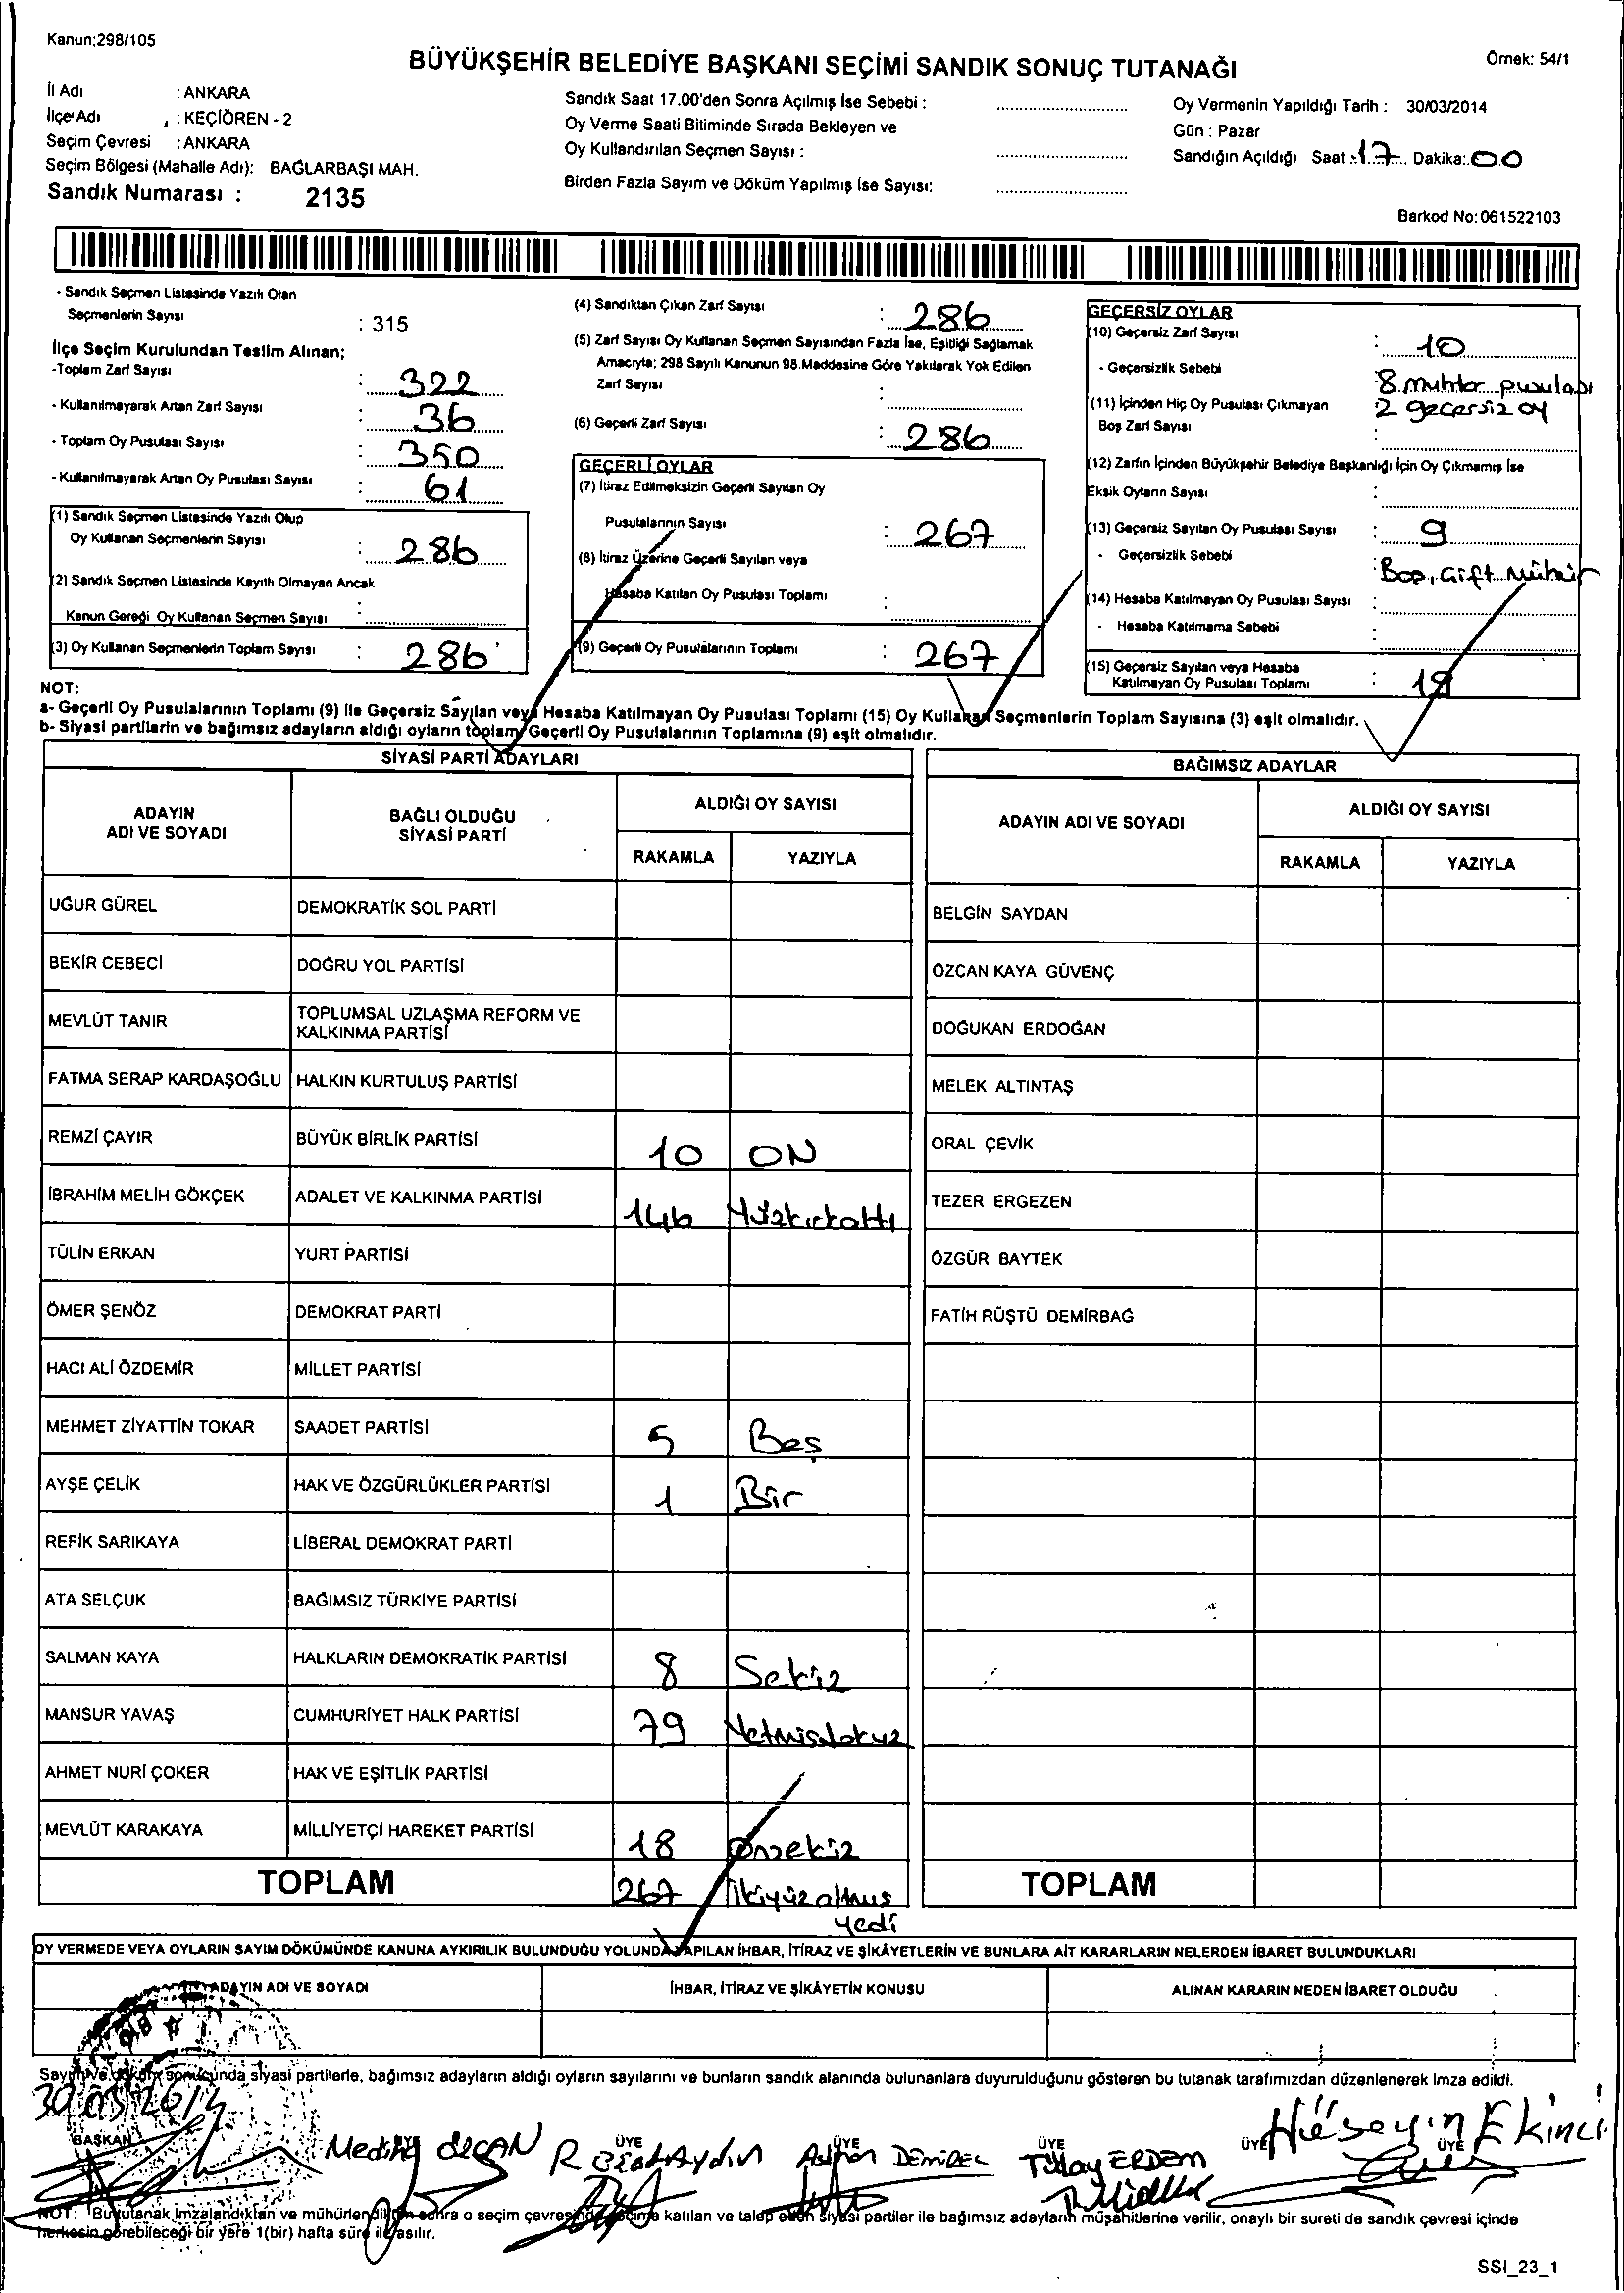 Kanun:298/105
BÜYÜKŞEHİR BELEDİYE BAŞKANI SEÇİMİ SANDIK SONUÇ TUTANAĞI
Örnek: 54/1
İl Adı : ANKARA
İlçe Adı : KEÇİÖREN - 2
Seçim Çevresi : ANKARA
Seçim Bölgesi (Mahalle Adı): BAĞLARBAŞI MAH.
Sandık Numarası : 2135
Sandık Saat 17.00'den Sonra Açılmış İse Sebebi :
Oy Verme Saati Bitiminde Sırada Bekleyen ve
Oy Kullandırılan Seçmen Sayısı :
Birden Fazla Sayım ve Döküm Yapılmış İse Sayısı:
Oy Vermenin Yapıldığı Tarih : 30/03/2014
Gün : Pazar
Sandığın Açıldığı Saat : 17 Dakika: 00
Barkod No: 061522103
- Sandık Seçmen Listesinde Yazılı Olan
Seçmenlerin Sayısı : 315
İlçe Seçim Kurulundan Teslim Alınan;
-Toplam Zarf Sayısı : 322
- Kullanılmayarak Artan Zarf Sayısı : 36
- Toplam Oy Pusulası Sayısı : 350
- Kullanılmayarak Artan Oy Pusulası Sayısı : 61
(1) Sandık Seçmen Listesinde Yazılı Olup
Oy Kullanan Seçmenlerin Sayısı : 286
(2) Sandık Seçmen Listesinde Kayıtlı Olmayan Ancak
Kanun Gereği Oy Kullanan Seçmen Sayısı :
(3) Oy Kullanan Seçmenlerin Toplam Sayısı : 286
(4) Sandıktan Çıkan Zarf Sayısı : 286
(5) Zarf Sayısı Oy Kullanan Seçmen Sayısından Fazla İse, Eşitliği Sağlamak
Amacıyla; 298 Sayılı Kanunun 98.Maddesine Göre Yakılarak Yok Edilen
Zarf Sayısı :
(6) Geçerli Zarf Sayısı : 286
GEÇERLİ OYLAR
(7) İtiraz Edilmeksizin Geçerli Sayılan Oy
Pusulalarının Sayısı : 267
(8) İtiraz Üzerine Geçerli Sayılan veya
Hesaba Katılan Oy Pusulası Toplamı :
(9) Geçerli Oy Pusulalarının Toplamı : 267
GEÇERSİZ OYLAR
(10) Geçersiz Zarf Sayısı : 10
- Geçersizlik Sebebi : 8 muhtar pusulası
2 geçersiz oy
(11) İçinden Hiç Oy Pusulası Çıkmayan
Boş Zarf Sayısı :
(12) Zarfın İçinden Büyükşehir Belediye Başkanlığı İçin Oy Çıkmamış İse
Eksik Oyların Sayısı :
(13) Geçersiz Sayılan Oy Pusulası Sayısı : 9
- Geçersizlik Sebebi : Boş, Çift Mühür
(14) Hesaba Katılmayan Oy Pusulası Sayısı :
- Hesaba Katılmama Sebebi :
(15) Geçersiz Sayılan veya Hesaba
Katılmayan Oy Pusulası Toplamı : 19
NOT:
a- Geçerli Oy Pusulalarının Toplamı (9) ile Geçersiz Sayılan veya Hesaba Katılmayan Oy Pusulası Toplamı (15) Oy Kullanan Seçmenlerin Toplam Sayısına (3) eşit olmalıdır.
b- Siyasi partilerin ve bağımsız adayların aldığı oyların toplamı Geçerli Oy Pusulalarının Toplamına (9) eşit olmalıdır.
SİYASİ PARTİ ADAYLARI
ADAYIN ADI VE SOYADI BAĞLI OLDUĞU SİYASİ PARTİ ALDIĞI OY SAYISI
RAKAMLA YAZIYLA
UĞUR GÜREL DEMOKRATİK SOL PARTİ
BEKİR CEBECİ DOĞRU YOL PARTİSİ
MEVLÜT TANIR TOPLUMSAL UZLAŞMA REFORM VE KALKINMA PARTİSİ
FATMA SERAP KARDAŞOĞLU HALKIN KURTULUŞ PARTİSİ
REMZİ ÇAYIR BÜYÜK BİRLİK PARTİSİ 10 ON
İBRAHİM MELİH GÖKÇEK ADALET VE KALKINMA PARTİSİ 146 Yüzkırkaltı
TÜLİN ERKAN YURT PARTİSİ
ÖMER ŞENÖZ DEMOKRAT PARTİ
HACI ALİ ÖZDEMİR MİLLET PARTİSİ
MEHMET ZİYATTİN TOKAR SAADET PARTİSİ 5 Beş
AYŞE ÇELİK HAK VE ÖZGÜRLÜKLER PARTİSİ 1 Bir
REFİK SARIKAYA LİBERAL DEMOKRAT PARTİ
ATA SELÇUK BAĞIMSIZ TÜRKİYE PARTİSİ
SALMAN KAYA HALKLARIN DEMOKRATİK PARTİSİ 8 Sekiz
MANSUR YAVAŞ CUMHURİYET HALK PARTİSİ 79 Yetmişdokuz
AHMET NURİ ÇOKER HAK VE EŞİTLİK PARTİSİ
MEVLÜT KARAKAYA MİLLİYETÇİ HAREKET PARTİSİ 18 Onsekiz
TOPLAM 267 İkiyüz altmış
yedi
BAĞIMSIZ ADAYLAR
ADAYIN ADI VE SOYADI ALDIĞI OY SAYISI
RAKAMLA YAZIYLA
BELGİN SAYDAN
ÖZCAN KAYA GÜVENÇ
DOĞUKAN ERDOĞAN
MELEK ALTINTAŞ
ORAL ÇEVİK
TEZER ERGEZEN
ÖZGÜR BAYTEK
FATİH RÜŞTÜ DEMİRBAĞ
TOPLAM
OY VERMEDE VEYA OYLARIN SAYIM DÖKÜMÜNDE KANUNA AYKIRILIK BULUNDUĞU YOLUNDA YAPILAN İHBAR, İTİRAZ VE ŞİKÂYETLERİN VE BUNLARA AİT KARARLARIN NELERDEN İBARET BULUNDUKLARI
ADAYIN ADI VE SOYADI İHBAR, İTİRAZ VE ŞİKÂYETİN KONUSU ALINAN KARARIN NEDEN İBARET OLDUĞU
Sayım ve döküm sonucunda siyasi partilerle, bağımsız adayların aldığı oyların sayılarını ve bunların sandık alanında bulunanlara duyurulduğunu gösteren bu tutanak tarafımızdan düzenlenerek imza edildi.
30.03.2014
BAŞKAN ÜYE ÜYE ÜYE ÜYE ÜYE
DEMİREL Tülay ERDEM Hüseyin Ekinci
NOT: Bu tutanak imzalandıktan ve mühürlendikten sonra o seçim çevresinde seçime katılan ve talep eden siyasi partiler ile bağımsız adayların müşahitlerine verilir, onaylı bir sureti de sandık çevresi içinde
herkesin görebileceği bir yere 1(bir) hafta süre ile asılır.
SSI_23_1